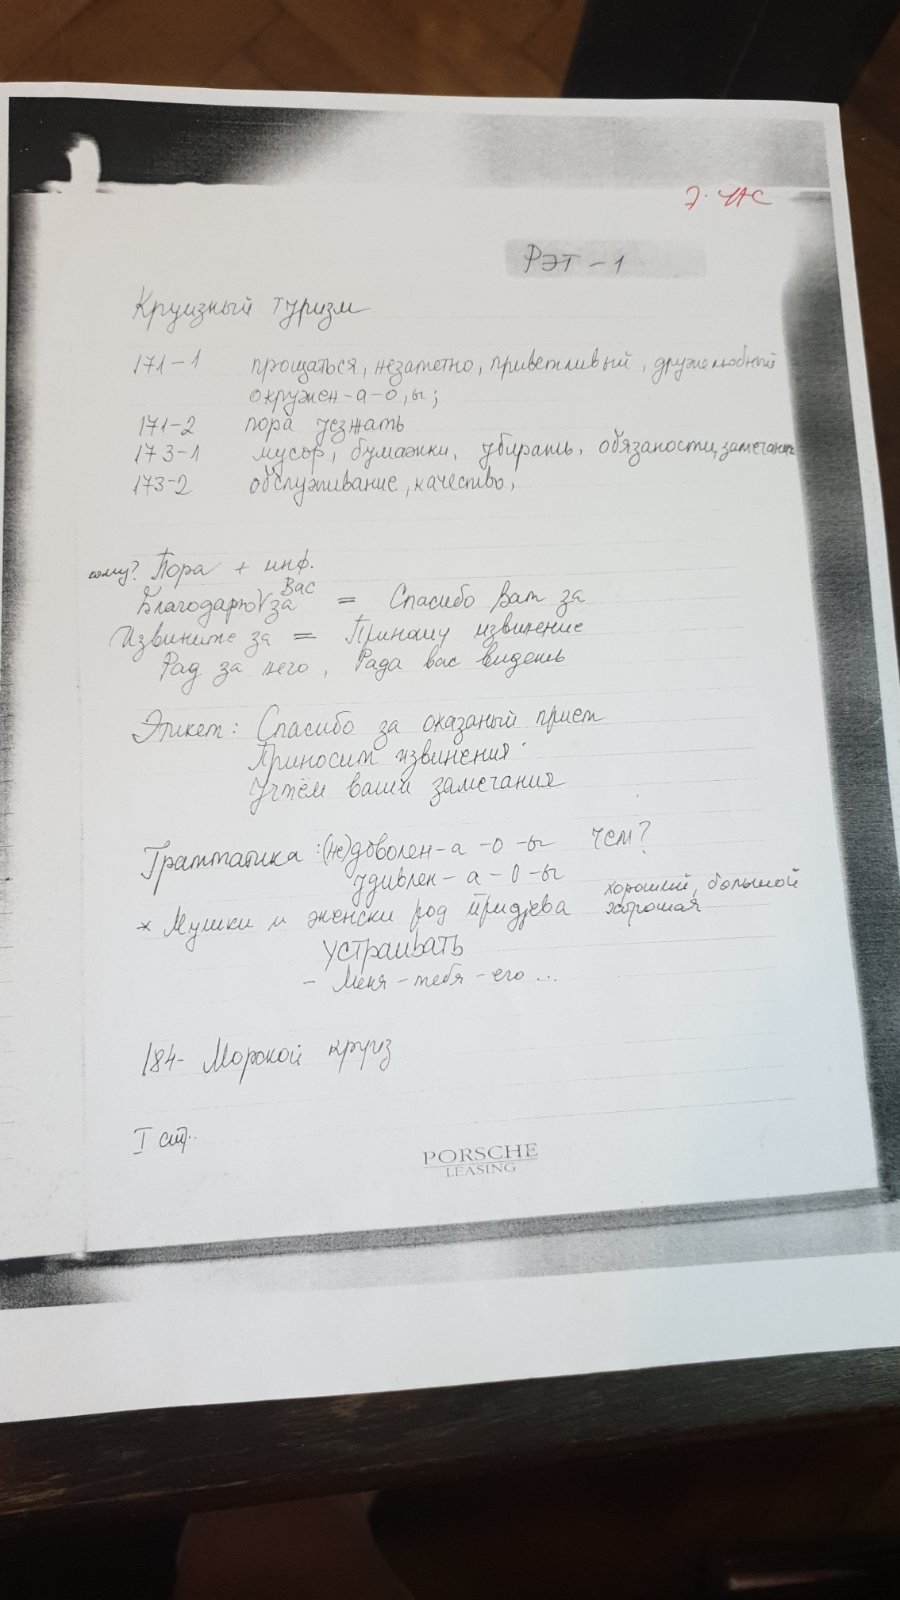 7. ЧАС
РЭТ - 1
Круизный туризм
171-1 прощаться, незаметно, приветливый, дружелюбный
окружен-а-о, ы;
171-2 пора уезжать
173-1 мусор, бумажки, убирать, обязаности, замечания
173-2 обслуживание, качество,
кому? Пора + инф.
Благодарю Vас за = Спасибо Вам за
Извините за = Приношу извинение
Рад за него, Рада вас видешь
Этикет: Спасибо за оказаный прием
Приносим извинения
Учтём ваши замечания
Грамматика: (не)доволен-а-о-ы чем?
удивлен-а-о-ы
* Мушки и женски род придјева хороший, большой
хорошая
устраивать
- Меня - тебя - его ...
184- Морской круиз
I стр.
PORSCHE
LEASING